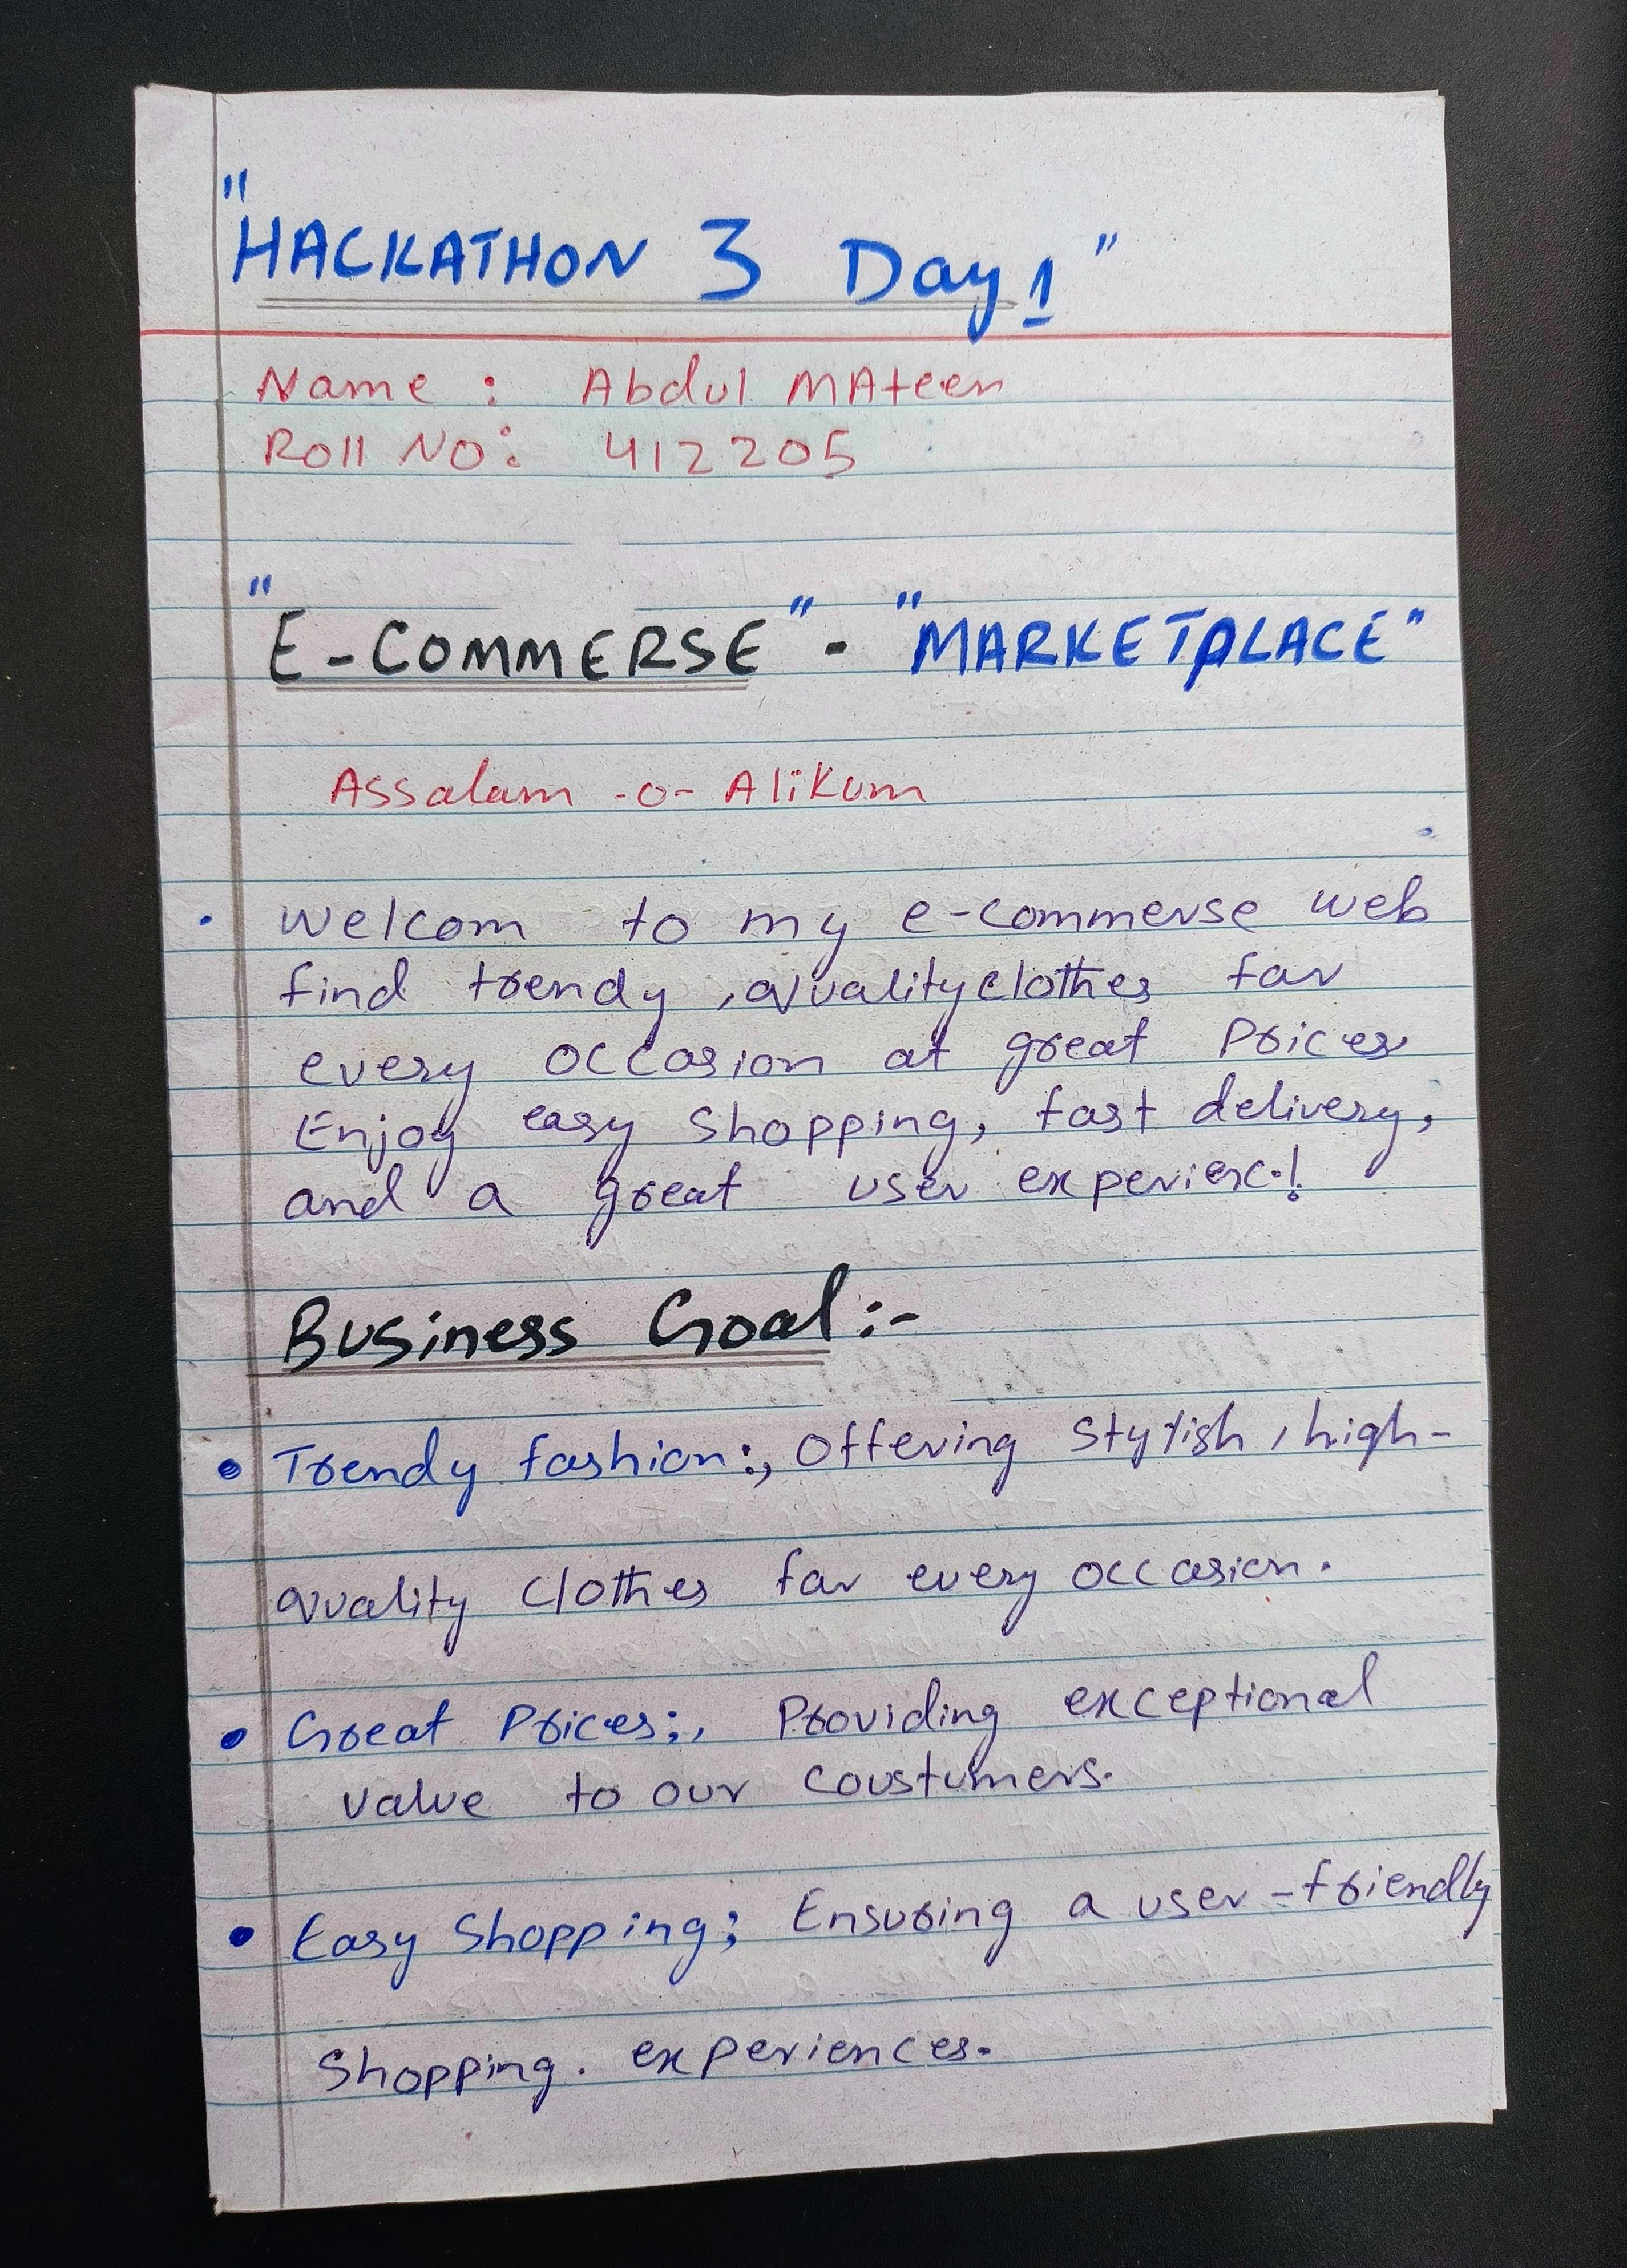 "HACKATHON 3 Day 1"
Name : Abdul MAteen
Roll NO: 412205
"E-COMMERSE" - "MARKETPLACE"
Assalam -o- Alikum
• Welcom to my e-commerse web
find trendy, quality clothes for
every occasion at great Prices
Enjoy easy Shopping, fast delivery,
and a great user experienc.!
Business Goal:-
• Trendy fashion:, Offering Stylish, high-
quality Clothes for every occasion.
• Great Prices:, Providing exceptional
value to our Coustumers.
• Easy Shopping; Ensuring a user-friendly
Shopping. experiences.